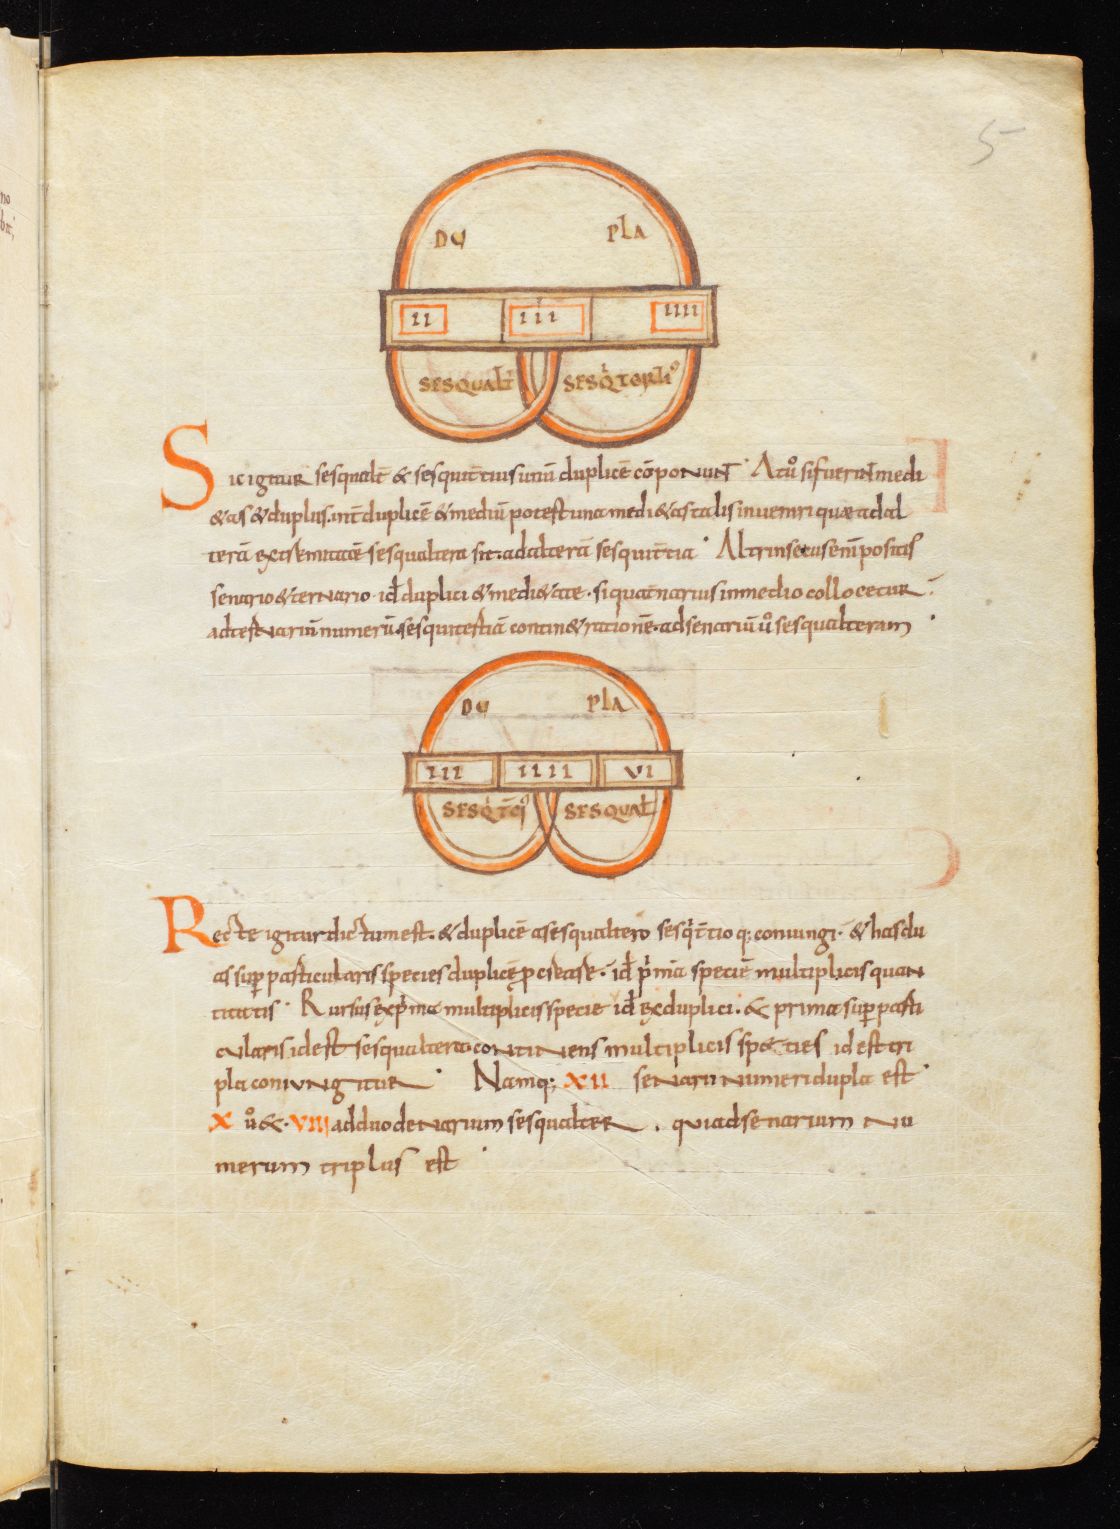 5
DU PLA
II III IIII
SESQUALT̄ SESQ̇TERTI᷒
Sic igitur sesqualt̄ & sesquit̄tius unū duplicē cōponunT̄. At ů si fuerint̄ medi
&as & duplus. int̄ duplicē & mediū potest una medi&as talis inveniri quae ad al
terā extremitatē sesqualtera sit. ad alterā sesquit̄tia. Altrinsecus enī positis
senario & ternario. id̄ duplici & medi&ate. si quat̄narius in medio collocetur.
ad ternariū numerū sesquitertiā contin& rationē. ad senariū ů sesqualteram.
DU PLA
III IIII VI
SESQ̇T̄CI᷒ SESQUALT̄
Recte igitur dictum est. & duplicē a sesqualtero sesq̇t̄tio q; coniungi. & has du
as sup̱particularis species duplicē p̱creare. id̄ p̍mā speciē multiplicis quan
titatis. Rursus ex p̍ma multiplicis specie id̄ ex duplici. & prima sup̱parti
cularis id est sesqualtera continens multiplicis species id est tri
pla coniungitur. Namq; XII senarii numeri dupla est.
X ů & . VIII ad duodenarium sesqualter. qui ad senarium nu
merum triplus est.